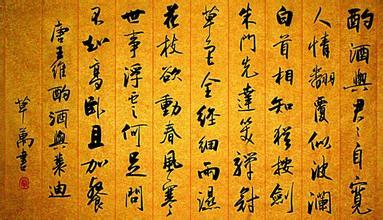 酌酒與君々自寬
人情翻覆似波瀾
白首相知猶按劍
朱門先達笑彈冠
草色全經細雨濕
花枝欲動春風寒
世事浮雲何足問
不如高臥且加餐
唐王維酌酒與裴迪
華萬書